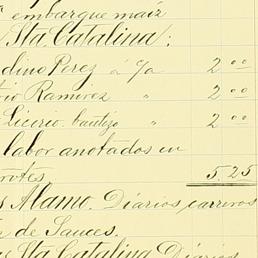 embarque maíz
Sta Catalina:
dino Perez á Ya 2 00
rio Ramirez " 2 00
Licerio. bautizo " 2 00
labor anotados en
rotes 5.25
Alamo. Diarios carreros
de Sauces.
Sta Catalina Diarios